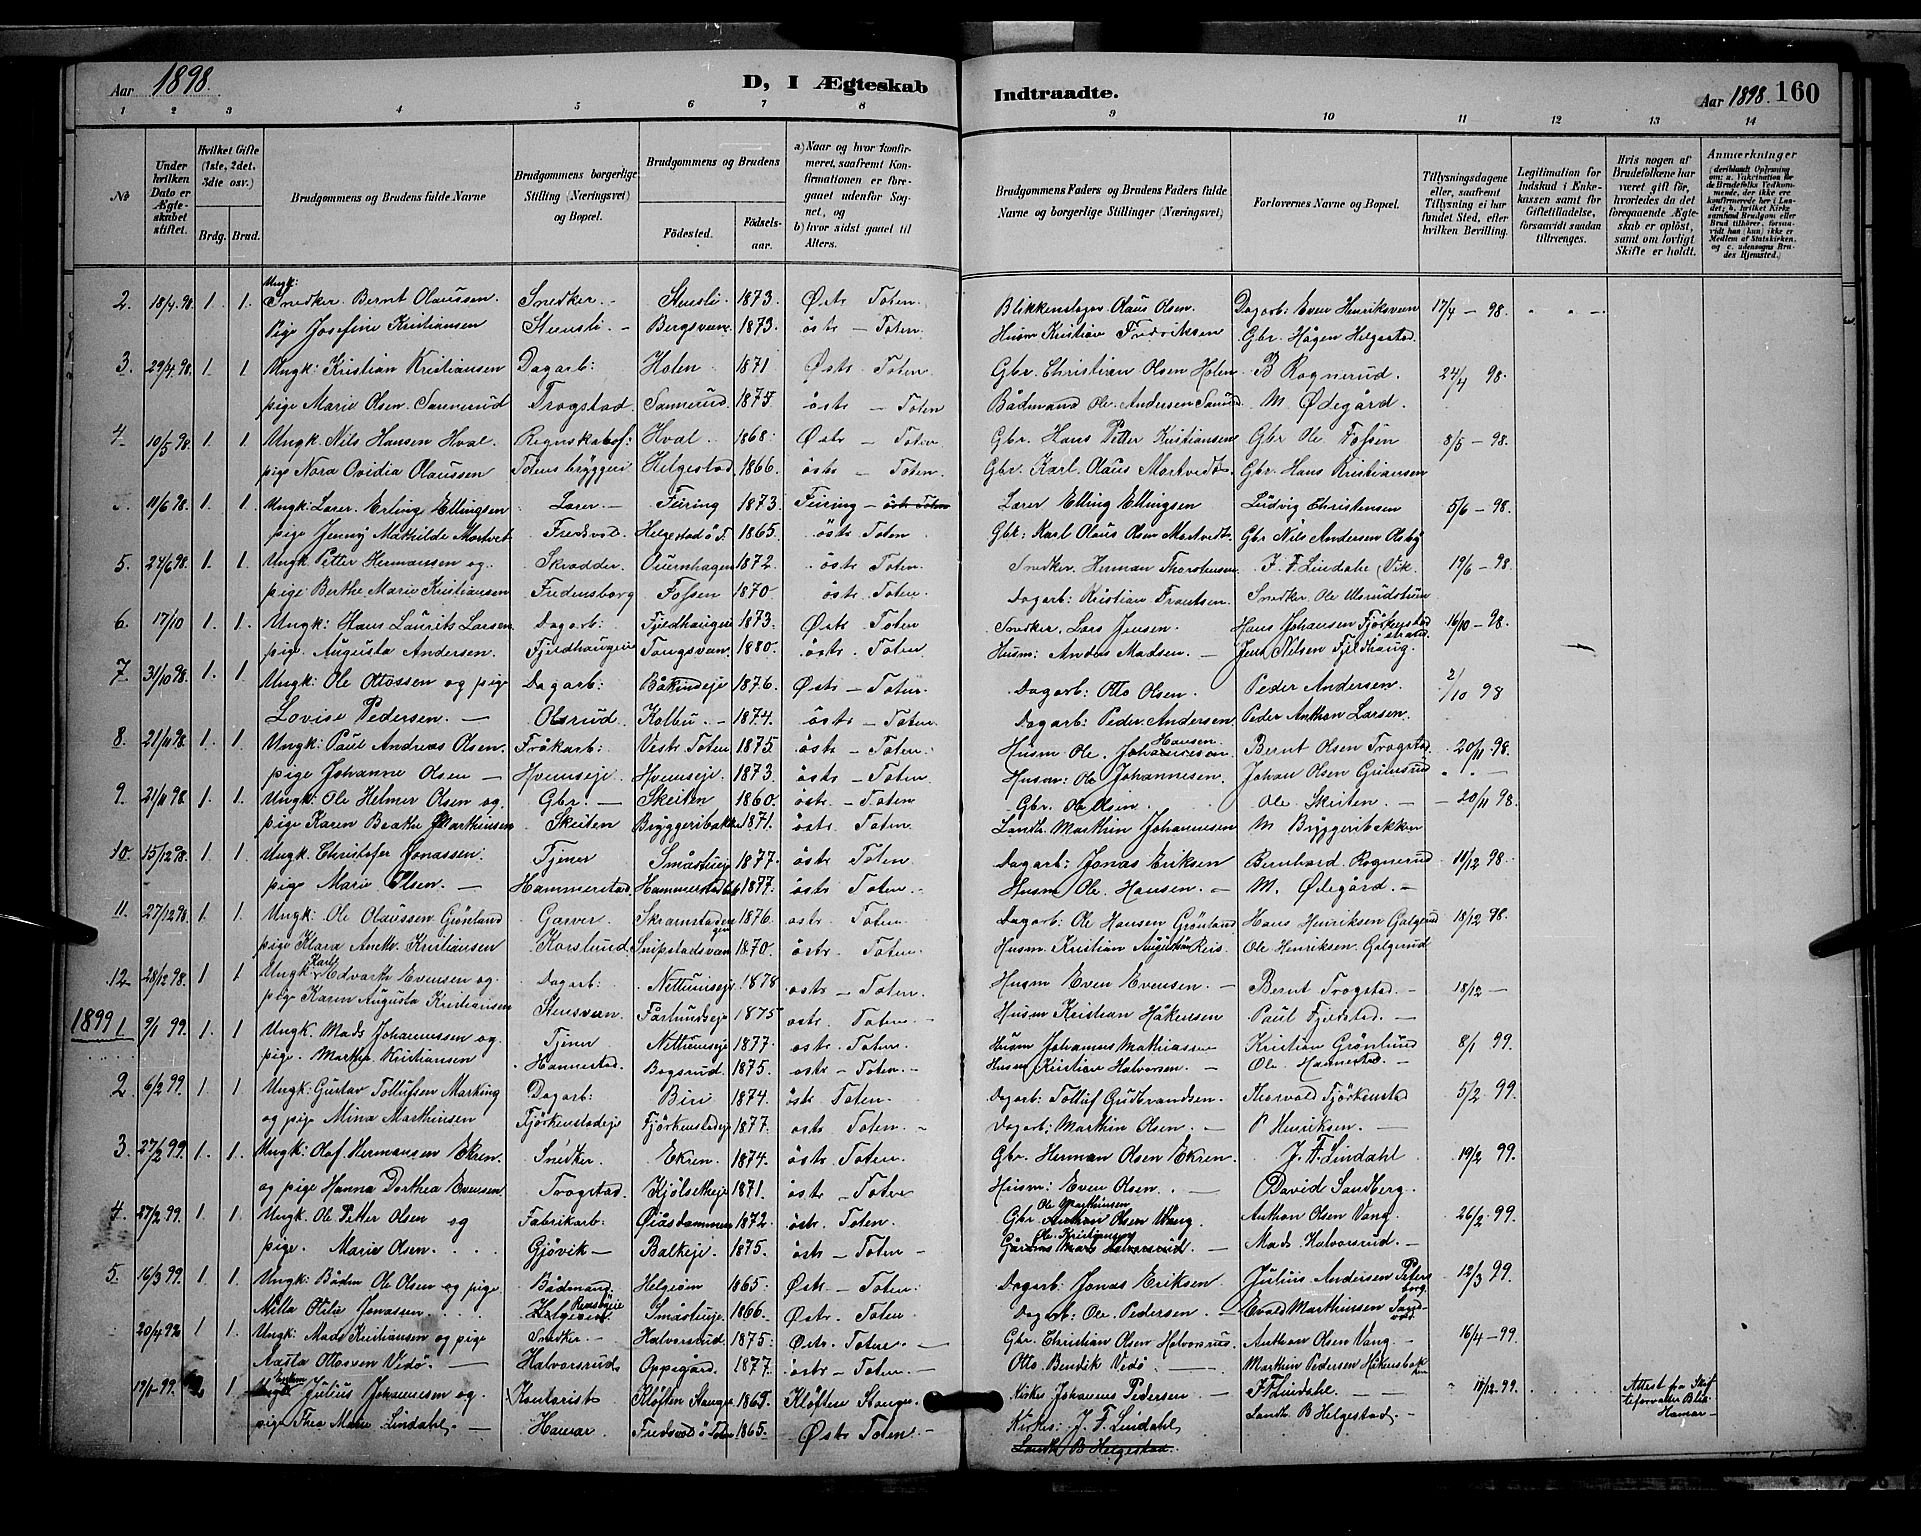 Aar 1898.
D, I Ægteskab
Indtraadte.
Aar 1898. 160
1 2 3 4 5 6 7 8 9 10 11 12 13 14
No
Under hvilken Dato er Ægteskabet stiftet.
Hvilket Gifte (1ste, 2det, 3dte osv.)
Brdg. Brud.
Brudgommens og Brudens fulde Navne
Brudgommens borgerlige Stilling (Næringsvei) og Bopæl.
Brudgommens og Brudens
Födested. Födsels-aar.
a) Naar og hvor konfirmeret, saafremt Konfirmationen er foregaaet udenfor Sognet, og
b) hvor sidst gaaet til Alters.
Brudgommens Faders og Brudens Faders fulde Navne og borgerlige Stillinger (Næringsvei)
Forlovernes Navne og Bopæl.
Tillysningsdagene eller, saafremt Tillysning ei har fundet Sted, efter hvilken Bevilling.
Legitimation for Indskud i Enkekassen samt for Giftetilladelse, forsaavidt saadan tiltrenges.
Hvis nogen af Brudefolkene har været gift för, hvorledes da det foregaaende Ægteskab er oplöst, samt om lovligt Skifte er holdt.
Anmærkninger
2 18/4 98. 1. 1. Ungk: Snedker. Bernt Olaussen. Snedker. Stensli 1873. Østr Toten. Blikkenslager Olaus Olsen. Dagarb: Even Henriksveen 17/4 - 98.
Pige Josefine Kristiansen Stensli Bergsveen 1873. östr - Toten. Husm Kristian Fredriksen Gbr. Hågen Helgestad.
3. 29/4 98. 1. 1. Ungk: Kristian Kristiansen Dagarb: Holen 1871 Østr Toten. Gbr. Christian Olsen Holen B Rognerud. 24/4 98.
pige Marie Olsen Sannerud Trogstad. Sannerud 1875. östr - Toten Bådmand Ole Andersen M. Ødegård.
4 10/5 98. 1. 1. Ungk. Nils Hansen Hval. Regnskabsf: Hval. 1868. Østr - Toten Gbr. Hans Petter Kristiansen Gbr Ole Fossen 8/5 - 98.
pige Nora Ovidia Olaussen Totens bryggeri Helgestad. 1866. östr - Toten. Gbr. Karl Olaus Mortvedt. Gbr. Hans Kristiansen
11/6 98. 1. 1. Ungk: Lærer. Erling Ellingsen Lærer - Feiring 1873 Feiring - östr Toten Lærer Elling Ellingsen Ludvig Christensen 5/6 - 98.
pige Jenny Mathilde Mortvet Fredsvol. Helgestad ö T. 1865. östr Toten Gbr: Karl Olaus Olsen Mortvedt. Gbr Nils Andersen Olsby
5. 24/6 98. 1. 1. Ungk Petter Hermansen og Skrædder. 1872 östr Toten. Snedker. Herman Thorstensen J. F. Lindahl Vik. 19/6 - 98
pige Berthe Marie Kristiansen Fredensborg Fossen 1870 östr. Toten. Dagarb: Kristian Frantsen. Snedker Ole
6. 17/10 1. 1. Ungk: Hans Laurits Larsen Dagarb: Fjeldhaugen 1873. Østr Toten Snedker. Lars Jensen. Hans Johansen Fjörkenstad strand. 16/10 - 98.
pige. Augusta Andersen. Fjeldhaugen Tangsveen. 1880. östr. Toten Husm: Anders Madsen. Jens Nilsen Fjeldhaug.
7. 31/10 98. 1. 1. Ungk: Ole Ottossen og pige Dagarb: 1876. Østr - Toten. Dagarb: Otto Olsen. Peder Andersen. 2/10 98
Lovise Pedersen. Olsrud. Kolbu. 1874. östr - Toten. Dagarb: Peder Andersen Peder Anthon Larsen.
8. 21/11 98. 1. 1. Ungk: Paul Andreas Olsen. Vestr Toten 1875 östr - Toten. Husm Ole Johannesen Hansen. Bernt Olsen Trogstad 20/11 98.
pige Johanne Olsen Hvemseje. Hvemseje. 1873. östr - Toten. Husm: Ole Johannesen. Johan Olsen Grimsrud
9. 21/11 98. 1. 1. Ungk: Ole Helmer Olsen og Gbr. - Skeiten 1860. östr - Toten Gbr. Ole Olsen. Ole Skeiten. 20/11 98.
pige Karen Beathe Marthinsen Skeiten Bryggeribakken 1871. östr Toten Landh. Marthin Johannesen M Bryggeribakken
10. 15/12 98. 1. 1. Ungk. Christofer Jonassen. Tjener Småstueje 1877. östr. Toten. Dagarb: Jonas Eriksen Bernhard Rognerud 11/12 98.
pige Marie Olsen. Hammerstad. 1877. östr Toten. Husm Ole Hansen. M. Ødegård.
11. 27/12 98 1. 1. Ungk: Ole Olaussen Grønlund Garver. Skramstadengen 1876. östr - Toten Dagarb: Ole Hansen Grønlund Hans Henriksen Galgerud 18/12 98.
pige Klara Aneth. Kristiansen Korslund. Snipstadsveen 1870. östr Toten. Husm. Kristian Augustin Reis. Ole Henriksen Galgerud
12 28/12 98. 1 1. Ungk. Karl Edvarth Evensen og Dagarb: Nettumseje 1878 östr - Toten. Husm Even Evensen. Bernt Trogstad. 18/12 -
pige Karen Augusta Kristiansen Stensveen. Fårlundseje 1875 östr. Toten. Husm Kristian Håkensen Paul Fjeldstad.
1899 1. 9/1 99. 1. 1 Ungk. Mads Johannessen og Tjener Nettumseje 1877. östr. Toten. Husm Johannes Mathiassen Kristian Grønlund 8/1 99.
pige. Marthea Kristiansen Hannestad. Bogsrud. 1875. östr - Toten. Husm Kristian Halvorsen. Ole Hannestad.
2 6/2 99. 1 1. Ungk: Gustav Tollufsen Marking Dagarb: Biri 1874. östr Toten. Dagarb: Tolluf Gudbrandsen. Thorvald Fjörkenstad 5/2 99.
og pige Mina Marthinsen Fjörkenstadeje Fjörkenstadeje 1877. östr Toten. Dagarb: Marthin Olsen. P Henriksen.
3. 27/2 99. 1. 1. Ungk: Olaf Hermansen Ekren. Snedker Ekren. 1874. östr. Toten. Gbr Herman Olsen Ekren. J. F. Lindahl 19/2 99.
og pige Hanna Dorthea Evensen Trogstad. Kjölsetheje 1871. östr - Toten Husm: Even Olsen. David Sandberg.
4. 27/2 99. 1. 1. Ungk. Ole Petter Olsen og Fabrikarb: 1872. östr. Toten. Gbr Ole Marthinsen Anthon Olsen Vang. Anthon Olsen Vang 26/2 99.
pige. Marie Olsen. Gjövik - Balkeje. 1875. östr - Toten Ole Kristiansen Mads Halvorsrud. Mads Halvorsrud.
5. 16/3 99. 1. 1. Ungk: Båden Ole Olsen og pige Bådmand. 1865. Østr - Toten. Dagarb. Jonas Eriksen Julius Andersen Petersborg. 12/3 99.
Milla Otilie Jonassen. Småstueje. 1866. Østr. Toten Dagarb: Ole Pedersen. Evald Marthinsen
20/4 1 1. Ungk: Mads Kristiansen og pige Snedker Halvorsrud. 1875. Østr. Toten. Gbr. Christian Olsen Halvorsrus Anthon Olsen Vang 16/4 - 99.
Aasta Ottosven Vedö. Halvorsrud. Oppegård. 1877. östr - Toten. Otto Bendik Vedö Marthin Pedersen
99. 1. Enkem Julius Johannesen og Kontorist Kløften Stange 1865. Kløften Stange. Kirkes Johannes Pedersen J F Lindahl. 18/12 99. Attest fra Skifteforvalter Hamar
pige Thea Marie Lindahl. Hamar Fredsvol ö Toten 1865. Østr Toten Kirkes: J. F. Lindahl Landh. B Helgestad.
Landh B Helgestad.